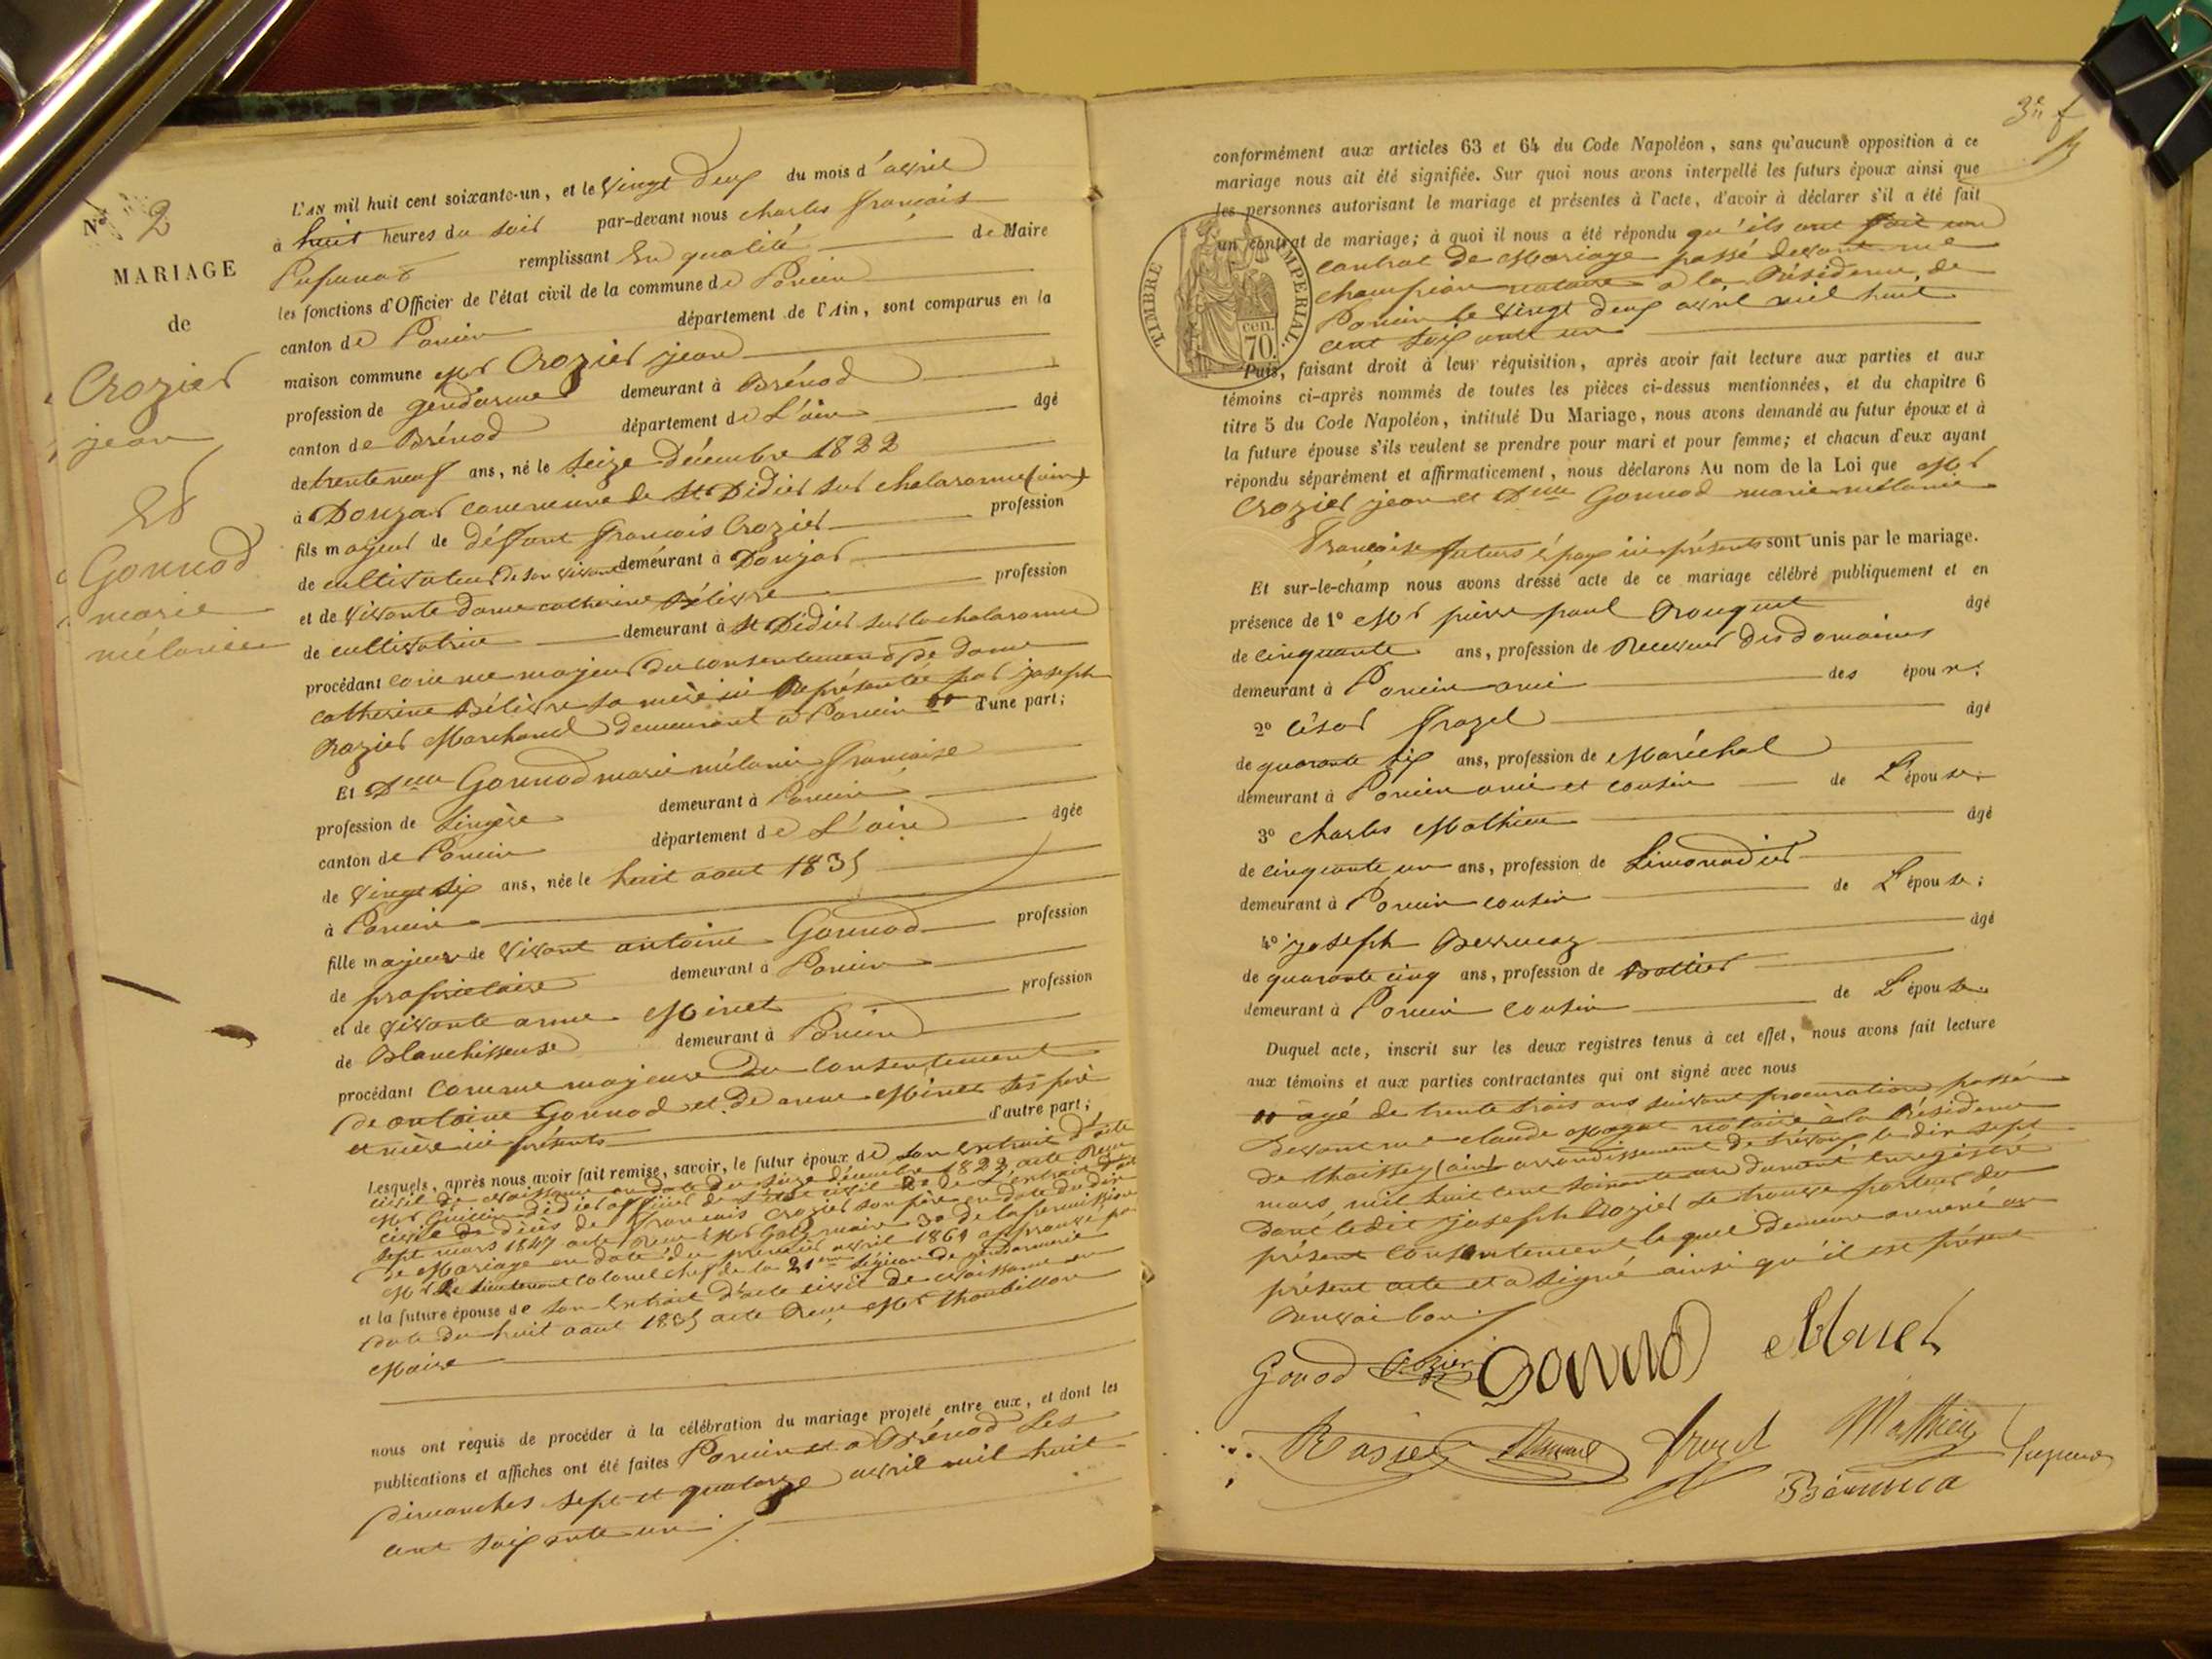 Nº 2
MARIAGE
de
Crozier
jean
Et
Gonnod
marie
mélanie
L'AN mil huit cent soixante-un, et le vingt deux du mois d'avril
à huit heures du soir par-devant nous charles françois
remplissant En qualité de Maire
les fonctions d'Officier de l'état civil de la commune de Poncin
canton de Poncin département de l'Ain, sont comparus en la
maison commune Mr Crozier jean
profession de gendarme demeurant à Brénod
canton de Brénod département de L'ain âgé
de trente neuf ans, né le Seize Décembre 1822
à commune de St Didier sur chalaronne (ain)
fils majeur de défunt françois Crozier profession
de cultivateur de son vivant demeurant à
et de vivante dame catherine Bélièvre profession
de cultivatrice demeurant à St Didier sur la chalaronne
procédant comme majeur du consentement de dame
catherine Bélièvre sa mère ici Représentée par joseph
Rozier Marchand demeurant à Poncin d'une part;
Et Delle Gonnod marie mélanie françoise
profession de Lingère demeurant à Poncin
canton de Poncin département de L'ain âgée
de vingt six ans, née le huit aout 1835
à Poncin
fille majeure de vivant antoine Gonnod profession
de propriétaire demeurant à Poncin
et de vivante anne Minet profession
de Blanchisseuse demeurant à Poncin
procédant comme majeure Du Consentement
de antoine Gonnod et de anne Minet ses père
et mère ici présents d'autre part;
Lesquels, après nous avoir fait remise, savoir, le futur époux de son Extrait d'acte
civil de Naissance en date du seize décembre 1822, acte Reçu
Mr Guillin Didier officier de l'état civil 2º de L'extrait d'acte
civil de décès de françois Crozier son père en date du dix
sept mars 1847 acte Reçu Mr maire 3º de la permission
de Mariage en date du premier avril 1861 approuvé par
Mr Le Lieutenant Colonel chef de la 21eme Légion de gendarmerie
et la future épouse de son Extrait d'acte civil de Naissance en
date du huit aout 1835 acte Reçu Mr Thoubillon
Maire
nous ont requis de procéder à la célébration du mariage projeté entre eux, et dont les
publications et affiches ont été faites Poncin et a Brénod Les
dimanches sept et quatorze avril mil huit
cent soixante un.
conformément aux articles 63 et 64 du Code Napoléon, sans qu'aucune opposition à ce
mariage nous ait été signifiée. Sur quoi nous avons interpellé les futurs époux ainsi que
les personnes autorisant le mariage et présentes à l'acte, d'avoir à déclarer s'il a été fait
un contrat de mariage; à quoi il nous a été répondu qu'ils ont fait un
contrat de Mariage passé devant me
champion notaire a la Résidence de
Poncin le vingt deux avril mil huit
cent soixante un
TIMBRE IMPERIAL.
70 cen.
Puis, faisant droit à leur réquisition, après avoir fait lecture aux parties et aux
témoins ci-après nommés de toutes les pièces ci-dessus mentionnées, et du chapitre 6
titre 5 du Code Napoléon, intitulé Du Mariage, nous avons demandé au futur époux et à
la future épouse s'ils veulent se prendre pour mari et pour femme; et chacun d'eux ayant
répondu séparément et affirmativement, nous déclarons Au nom de la Loi que Mr
Crozier jean et Delle Gonnod marie mélanie
Françoise futurs époux ici présents sont unis par le mariage.
Et sur-le-champ nous avons dressé acte de ce mariage célébré publiquement et en
présence de 1º Mr pierre paul Rouquet âgé
de cinquante ans, profession de Receveur des domaines
demeurant à Poncin ami des époux.
2º César frazel âgé
de quarante six ans, profession de Maréchal
demeurant à Poncin ami et cousin de L'épouse.
3º charles Mathieu âgé
de cinquante un ans, profession de Limonadier
demeurant à Poncin cousin de L'épouse;
4º joseph âgé
de quarante cinq ans, profession de Bottier
demeurant à Poncin cousin de L'épouse.
Duquel acte, inscrit sur les deux registres tenus à cet effet, nous avons fait lecture
aux témoins et aux parties contractantes qui ont signé avec nous
agé de trente trois ans suivant procuration passée
Devant me claude notaire à la Résidence
de thoissey (ain) arrondissement de Trévoux le dix sept
mars mil huit cent soixante un dument Enregistré
dont ledit joseph Rozier se trouve porteur du
présent consentement le quel demeure annexé au
présent acte et a signé ainsi qu'il est présent
Renvoi bon
Gonod Crozier Gonnod Minet
Rosier frazel Mathieu